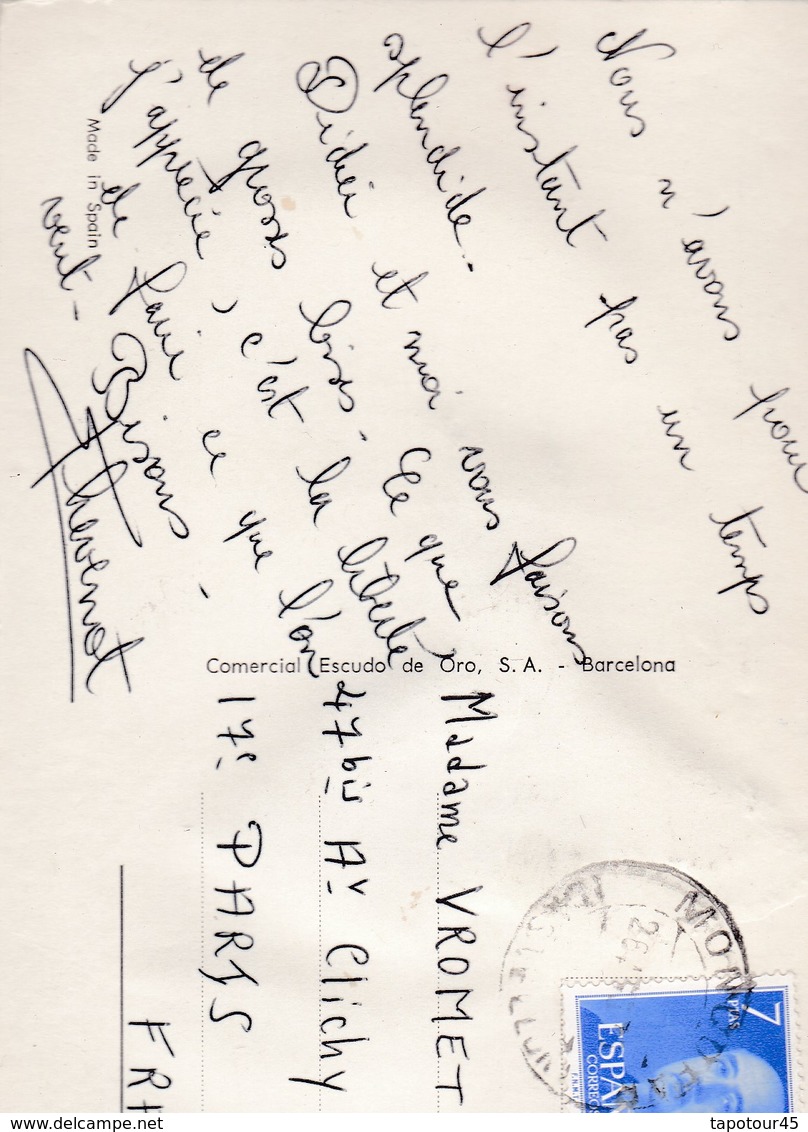 Nous n'avons pour
l'instant pas un temps
splendide.
Didier et moi vous faisons
de grosses bises. Ce que
j'apprécie, c'est la liberté
de faire ce que l'on
veut - Bisous -
Thevenot
Made in Spain
Comercial Escudo de Oro, S. A. - Barcelona
Madame VROMET
47 bis Av Clichy
17e PARIS
FR
7
PTAS
ESPAÑ
CORREOS
F.N.M.T.
delcampe.net
tapotour45